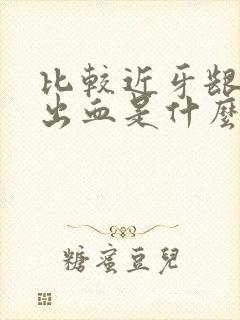 比較近牙龈
出血是什麼
糖蜜豆兒